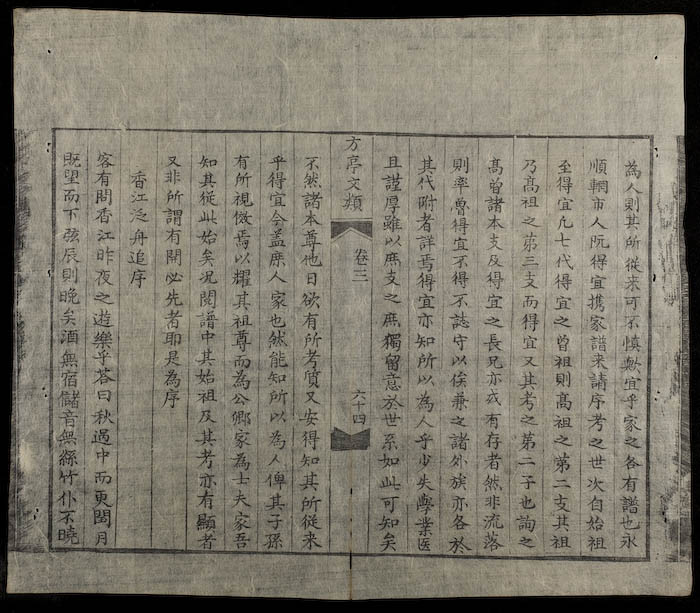 為人則其所從來可不慎歟宜乎家之各有譜也永
順輞市人阮得宜携家譜来請序考之世次自始祖
至得宜凢七代得宜之曽祖則髙祖之第二支其祖
乃髙祖之第三支而得宜又其考之第二子也詢之
髙曽諸本支及得宜之長兄亦或有存者然非流落
則率魯得宜不得不誌守以俟兼之諸外族亦各於
其代附者詳焉得宜亦知所以為人乎少失學業医
且謹厚雖以庶支之庶獨留意於世系如此可知矣
方亭文類
卷三
六十四
不然諸本尊他日欲有所考質又安得知其所從来
乎得宜今盖庶人家也然能知所以為人俾其子孫
有所視傚焉以耀其祖尊而為公卿家為士夫家吾
知其從此始矣况閱譜中其始祖及其考亦有顯者
又非所謂有開必先者耶是為序
香江泛舟追序
客有問香江昨夜之遊樂乎荅曰秋過中而更閏月
既望而下弦辰則晚矣酒無宿儲音無絲竹仆不曉